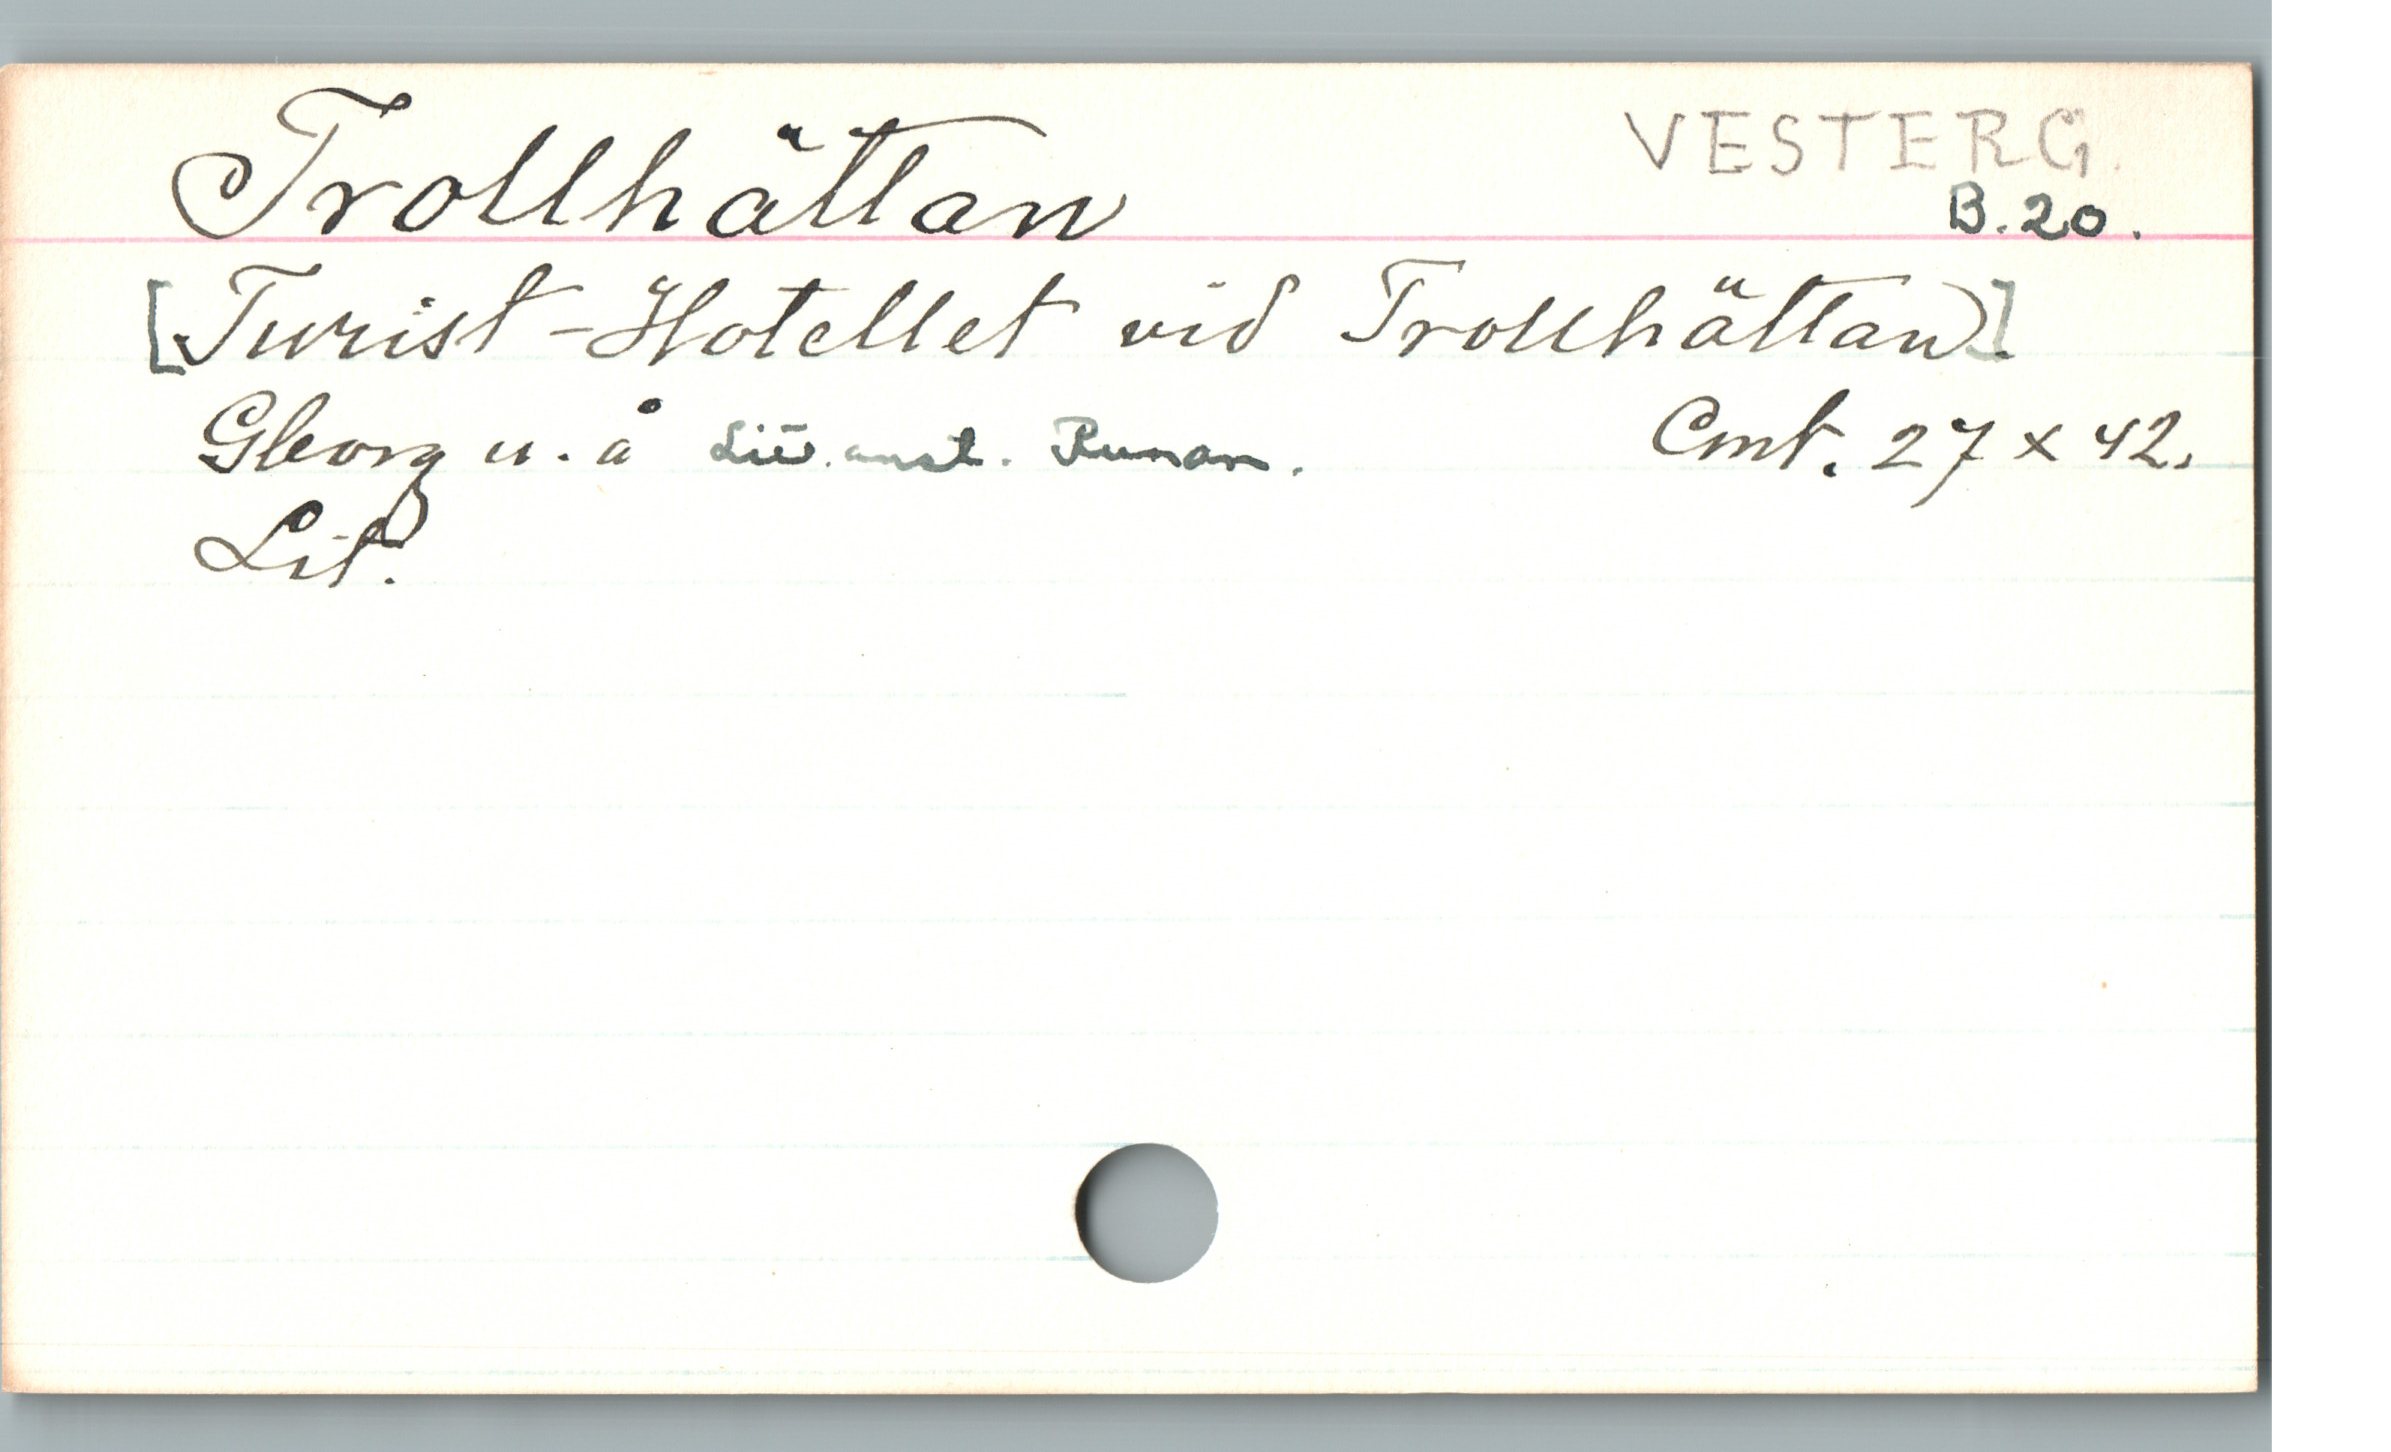 Trollhättan
VESTERG.
B. 20.
[Turist-Hotellet vid Trollhättan].
Gborg u. å Lit. anst. Runan. Cmt. 27 x 42.
Lit.